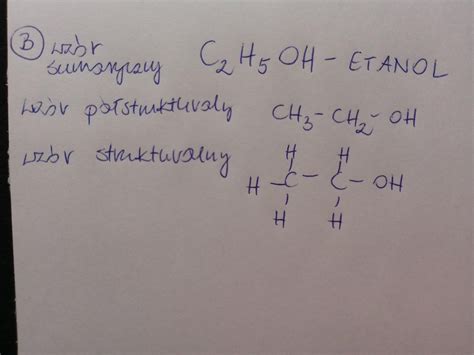 B) wzór
sumaryczny C₂H₅OH - ETANOL
wzór półstrukturalny CH₃-CH₂-OH
wzór strukturalny
H H
H-C-C-OH
H H